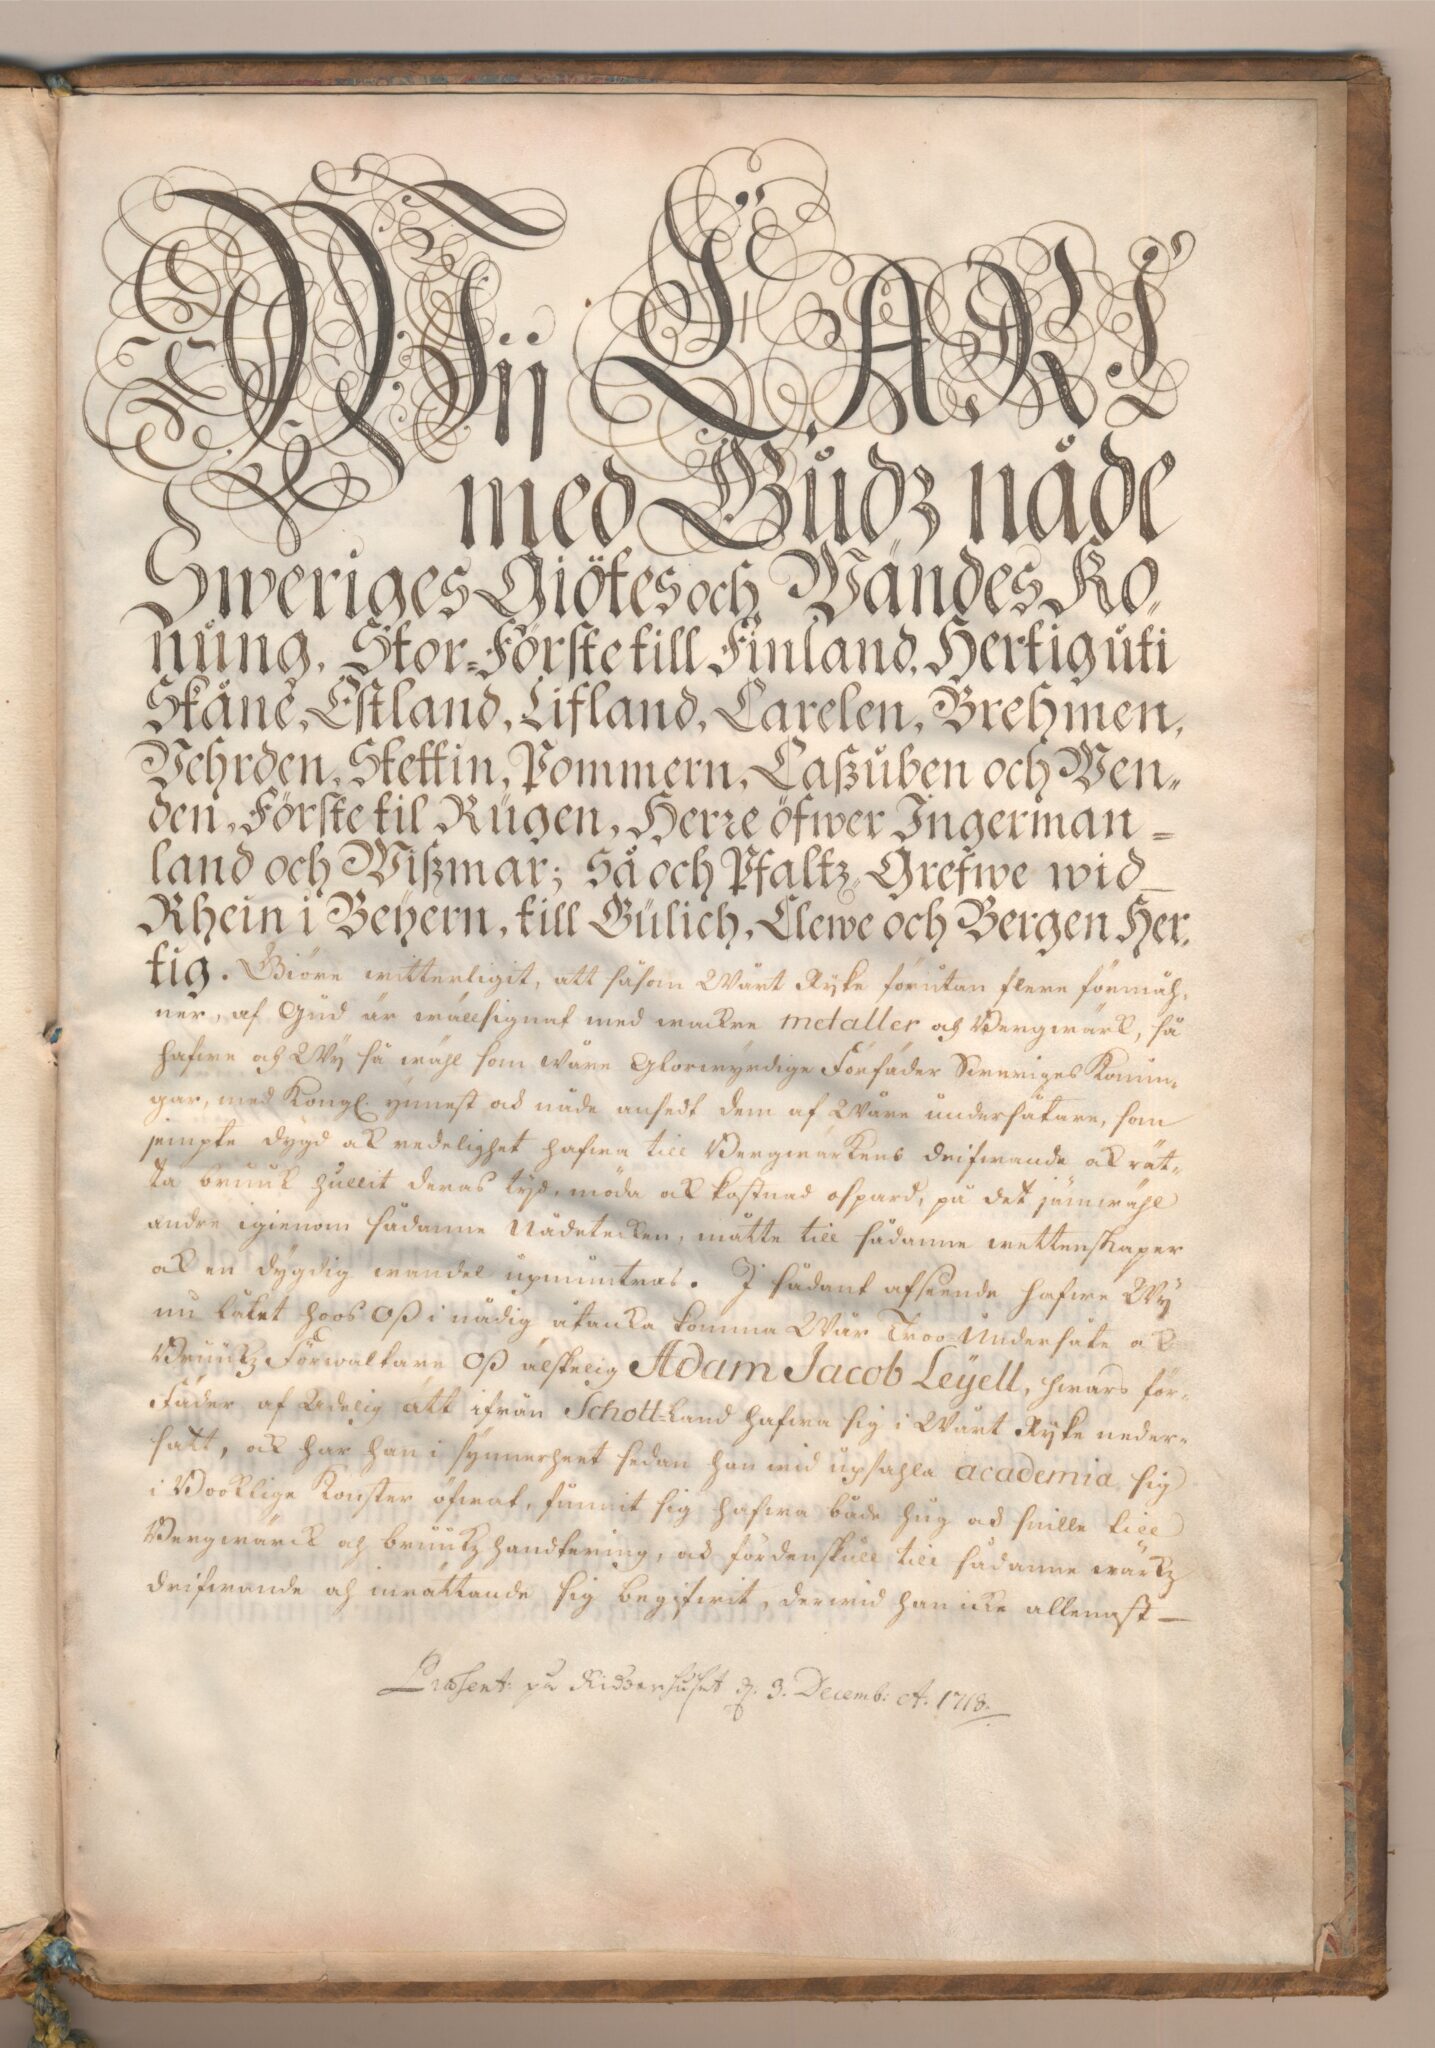 Wij CARL
med Gudz nåde
Sweriges Giötes och Wändes Ko,
nung, Stor-Förste till Finland, Hertig uti
Skåne, Estland, Lifland, Carelen, Brehmen,
Vehrden, Stettin, Pommern, Caßuben och Wen-
den, Förste til Rügen, Herre öfwer Ingerman-
land och Wißmar; Så och Pfaltz Grefwe wid
Rhein i Beyern, till Gülich, Clewe och Bergen Her-
tig. Giöre witterligit, att såsom Wårt Ryke förutan flere förmåh-
ner, af Gud är wälsignat med wackre metaller och Bergwärk, så
hafwe och Wÿ så wähl som wåre Glorwyrdige Förfäder Sweriges Konun-
gar, med Kongl. ynnest och nåde ansedt dem af Wåre undersåtare, som
jempte dygd och redelighet hafwa till Bergwärkens drifwande och rät-
ta bruuk hullit deras tyd, möda och kostnad ospard, på det jämwähl
andre igienom sådanne Nådetecken, måtte till sådanne wettenskaper
och en dygdig wandel upmuntras. I sådant afseende hafwe Wÿ
nu låtet hoos Oß i nådig åtanka komma Wår Troo Undersåte och
Bruukz Förwaltare Oß älskelig Adam Jacob Leÿell, hwars för-
fäder af Adelig ätt ifrån Schott-Land hafwa sig i Wårt Ryke neder-
satt, och har han i synnerheet sedan han wid upsahla academia sig
i Booklige Konster öfwat, funnit sig hafwa både hug och snille till
Bergwärck och bruukzhandtering, och fördenskull till sådanne wärkz
drifwande och inrättande sig begifwit, derwid han icke allenast
Præsent: på Ridderhuset d. 3. Decemb: A. 1718.